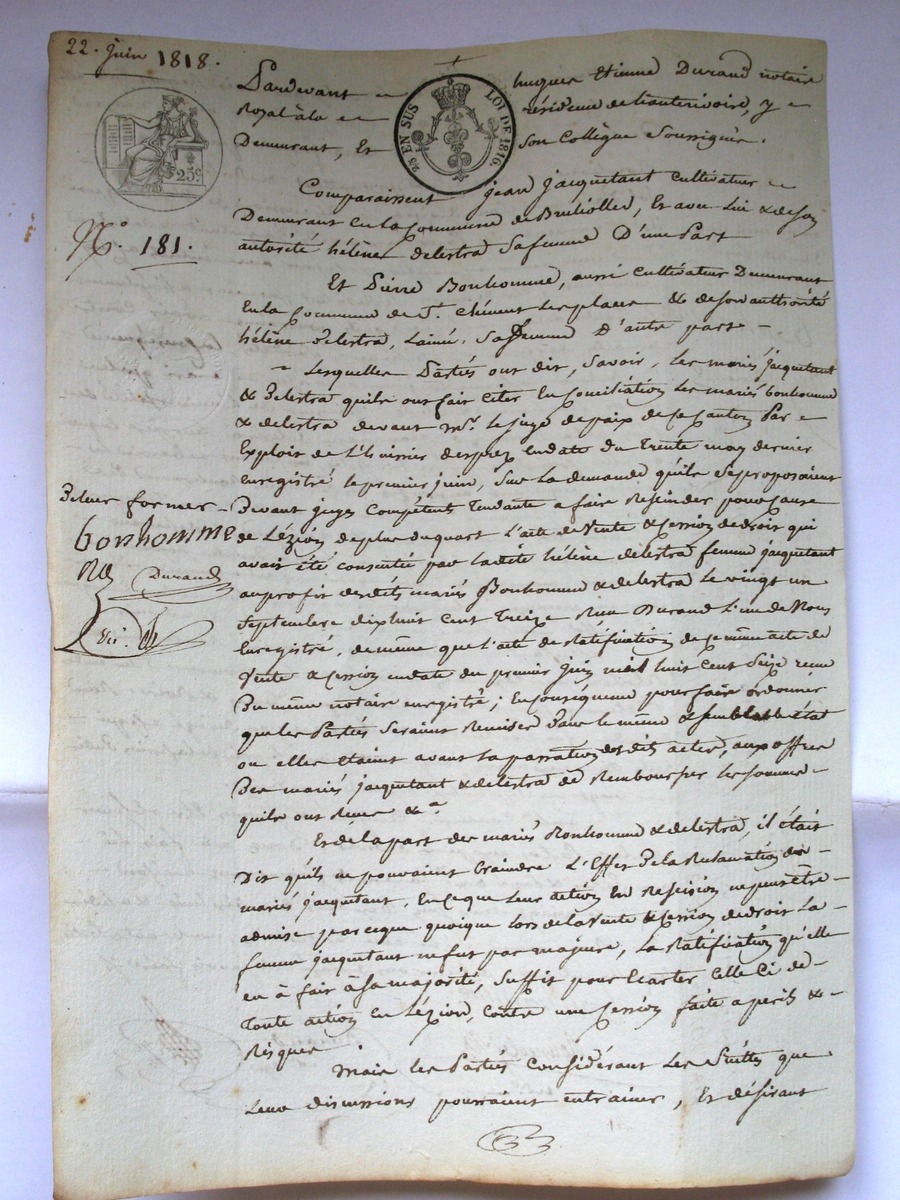 22. juin 1818.
25 EN SUS LOI DE 1816.
25.c
N.o 181.
Pardevant hugues Etienne Durand notaire
Royal à la résidence de hauterivoire, y
Demeurant, Et son Collègue Soussignés.
Comparaissent jean jacquetant cultivateur
Demeurant en la Commune de Brulliolles, Et avec lui & de son
autorité hélène delestra Sa femme D'une Part
Et Pierre Bonhomme, aussi cultivateur Demeurant
En la Commune de St. Clément les places & de son authorité
hélène Delestra, Lainée, Sa femme D'autre part
Lesquelles Partiés ont dit, Savoir, les mariés jacquetant
& Delestra quils ont fait citer En Conciliation les mariés bonhomme
& delestra devant mr. le juge de paix de ce Canton Par
Exploit de L'huissier desprez en date du Trente may dernier
Enregistré le premier juin, Sur la demande quils Seproposaient
De leur former
Devant juges Compétents Tendante a faire Rescinder pour cause
bonhomme
de Lézion de plus du quart L'acte de Vente & Cession de droit qui
avait été consentie par ladite hélène delestra femme jacquetant
Durand
au profit desdits mariés Bonhomme & delestra le vingt un
Septembre dix huit Cent Treize Reçu Durand L'un de Nous
Enregistré, de même que l'acte de Ratification de ce même acte de
Vente & Cession en date du premier juin mil huit Cent Seize reçu
Du même notaire enregistré; En Conséquence pour faire ordonner
que les Partiés Seraient Remises Dans le même & semblable état
ou elles étaient avant la passation desdits actes, aux offres
Des mariés jacquetant & delestra de Rembourser les sommes
quils ont Reçues & a
Et de la part des mariés Bonhomme & delestra, il était
Dit quils ne pouvaient Craindre L'Effet De la Reclamation des
mariés jacquetant, En ce que leur action En Rescision ne peut être
admise parceque quoique lors de la Vente & Cession de droit La
femme jacquetant ne fut pas majeure, La Ratification qu'elle
en à fait à Sa majorité, Suffit pour Ecarter Celle Ci de
Toute action En Lézion, Contre une Cession faite a perils &
Risques
Mais les Partiés Considérant Les Suittes que
Leurs discussions pourraient entrainer, Et désirant